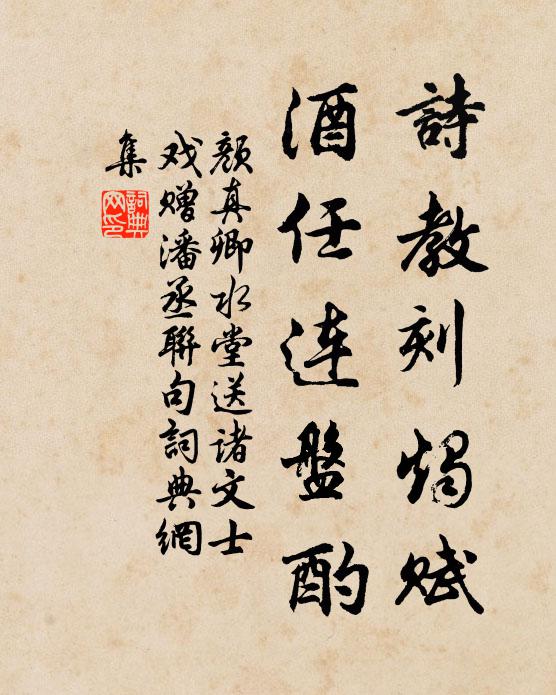 詩教刻燭賦
酒任连盤酌
颜真卿水堂送诸文士
戏赠潘丞聯句詞典網
集
詞典
网印